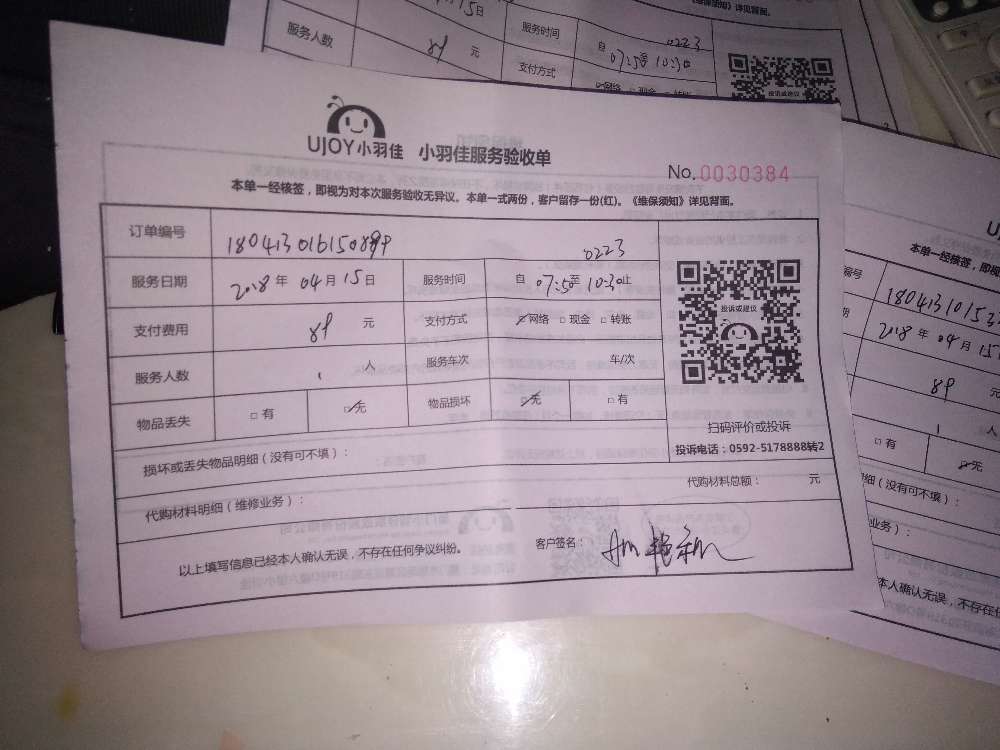 月15日
服务时间
0223
《维保须知》详见背面。
服务人数
89 元
支付方式
自 07:50至 10:30
投诉或建议
UJOY小羽佳 小羽佳服务验收单
No.0030384
本单一经核签，即视为对本次服务验收无异议。本单一式两份，客户留存一份(红)。《维保须知》详见背面。
订单编号
0223
服务日期 2018 年 04 月 15 日 服务时间 自 07:50至 10:30止
支付费用 89 元 支付方式 ☑网络 □ 现金 □ 转账
服务人数 1 人 服务车次 年/次
物品丢失 □ 有 ☑无 物品损坏 ☑无 □ 有
投诉或建议
扫码评价或投诉
投诉电话：0592-5178888转2
损坏或丢失物品明细（没有可不填）：
代购材料明细（维修业务）： 代购材料总额： 元
以上填写信息已经本人确认无误，不存在任何争议纠纷。 客户签名：
本单一经核签，即视
编号
2018 年 04 月 15
89 元
1 人
□ 有 ☑无
细（没有可不填）：
业务）：
本人确认无误，不存在任